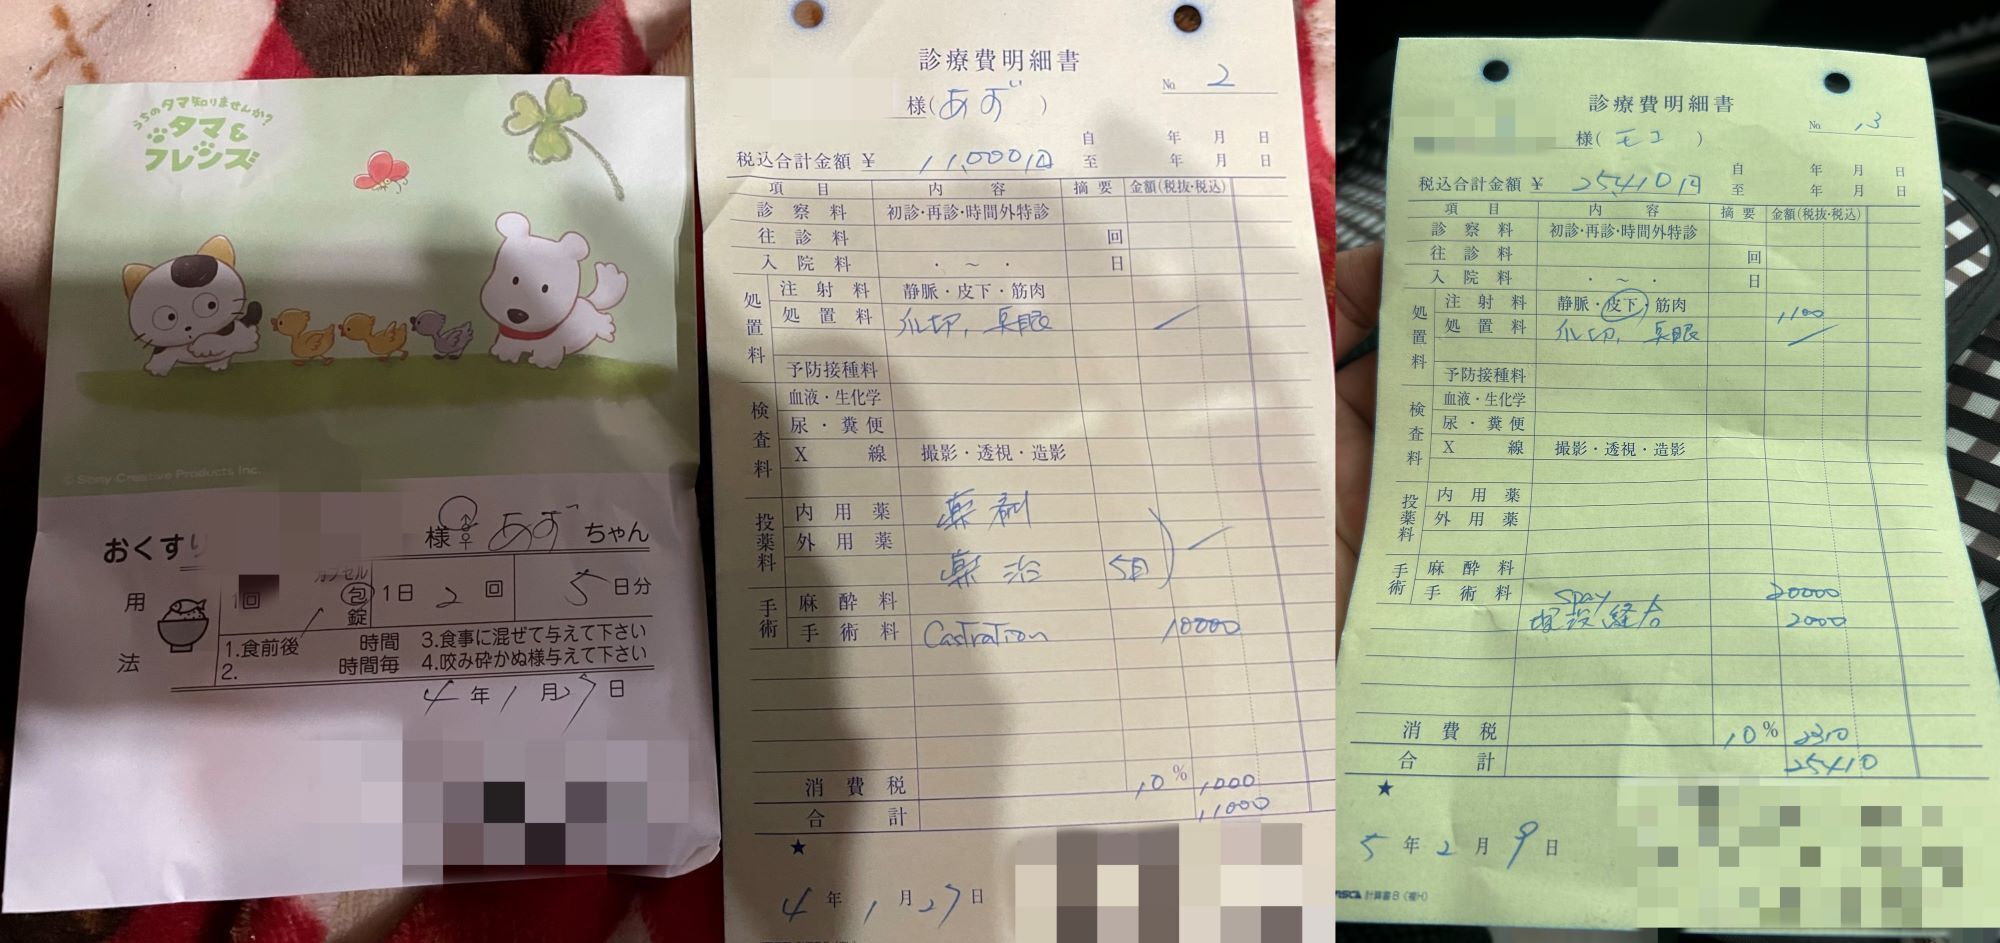 うちのタマ知りませんか?
タマ&
フレンズ
© Sony Creative Products Inc.
おくすり
様 ♂♀ あず ちゃん
用法
1回
カプセル
包
錠
1日 2 回
5 日分
1.食前後 時間 3.食事に混ぜて与えて下さい
2. 時間毎 4.咬み砕かぬ様与えて下さい
4 年 1 月 27 日
診療費明細書
№ 2
様(あず)
自 年 月 日
税込合計金額 ¥ 11,000円 至 年 月 日
項目 内容 摘要 金額(税抜・税込)
診察料 初診・再診・時間外特診
往診料 回
入院料 ・ ~ ・ 日
処置料
注射料 静脈・皮下・筋肉
処置料 爪切,
予防接種料
検査料
血液・生化学
尿・糞便
X線 撮影・透視・造影
投薬料
内用薬 薬剤
外用薬
薬治 5日
手術
麻酔料
手術料 Castration 10000
消費税 10% 1000
合計 11000
★
4 年 1 月 27 日
診療費明細書
№ 13
様(モコ)
自 年 月 日
税込合計金額 ¥ 25,410円 至 年 月 日
項目 内容 摘要 金額(税抜・税込)
診察料 初診・再診・時間外特診
往診料 回
入院料 ・ ~ ・ 日
処置料
注射料 静脈・皮下・筋肉 1100
処置料 爪切,
予防接種料
検査料
血液・生化学
尿・糞便
X線 撮影・透視・造影
投薬料
内用薬
外用薬
手術
麻酔料
手術料 spay 20000
2000
消費税 10% 2310
合計 25410
★
5 年 2 月 9 日
計算書B(複H)